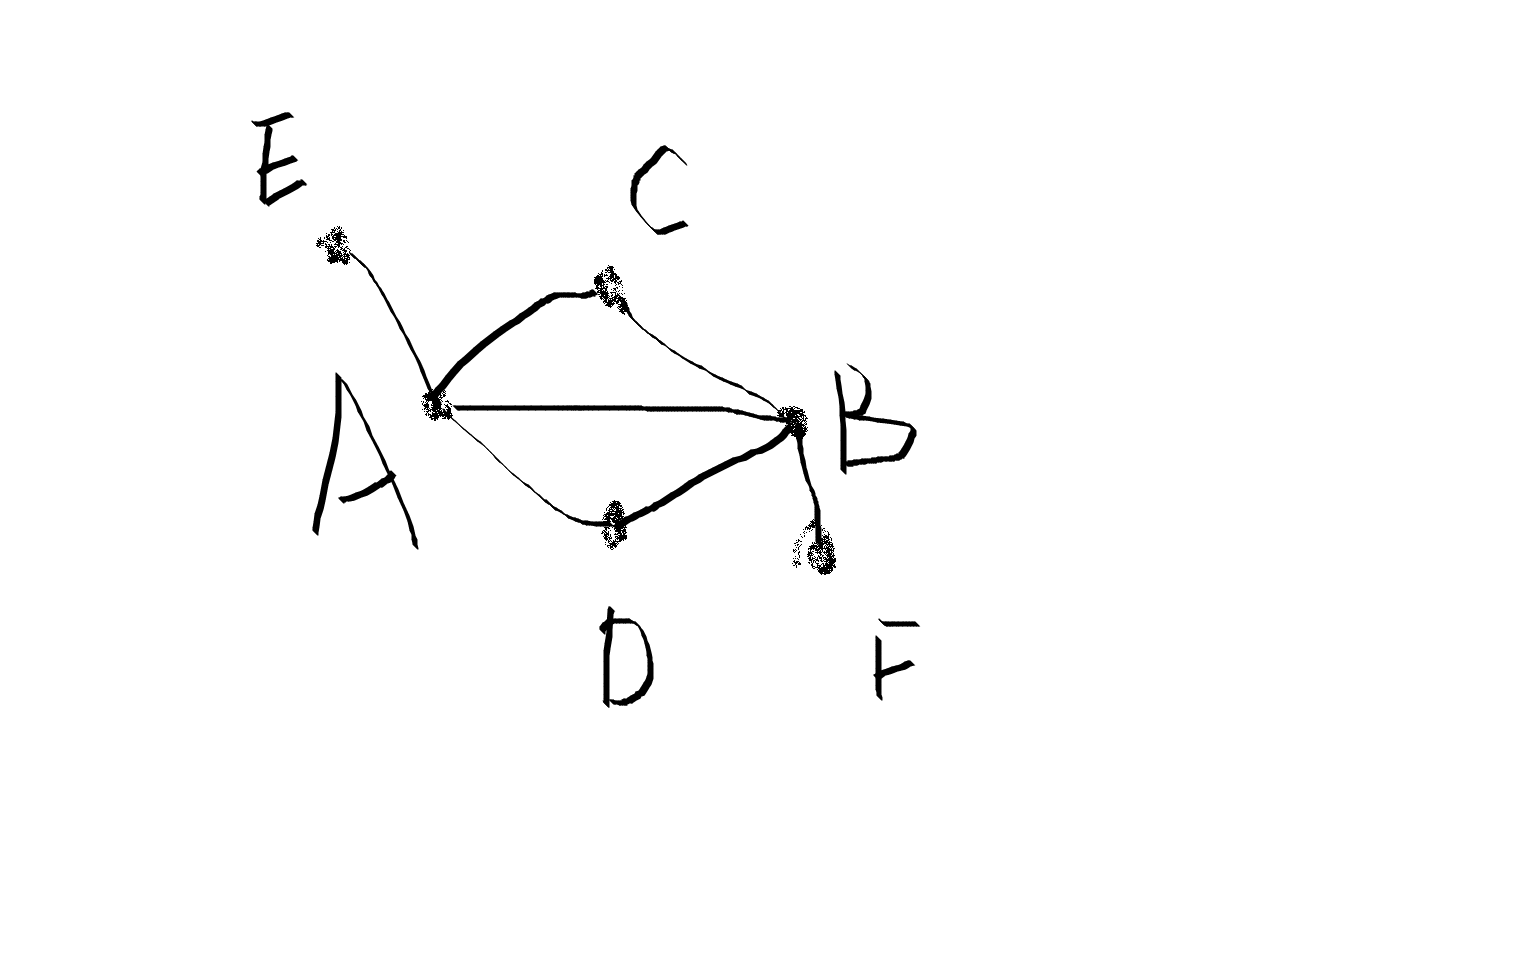 E
C
A
B
D
F